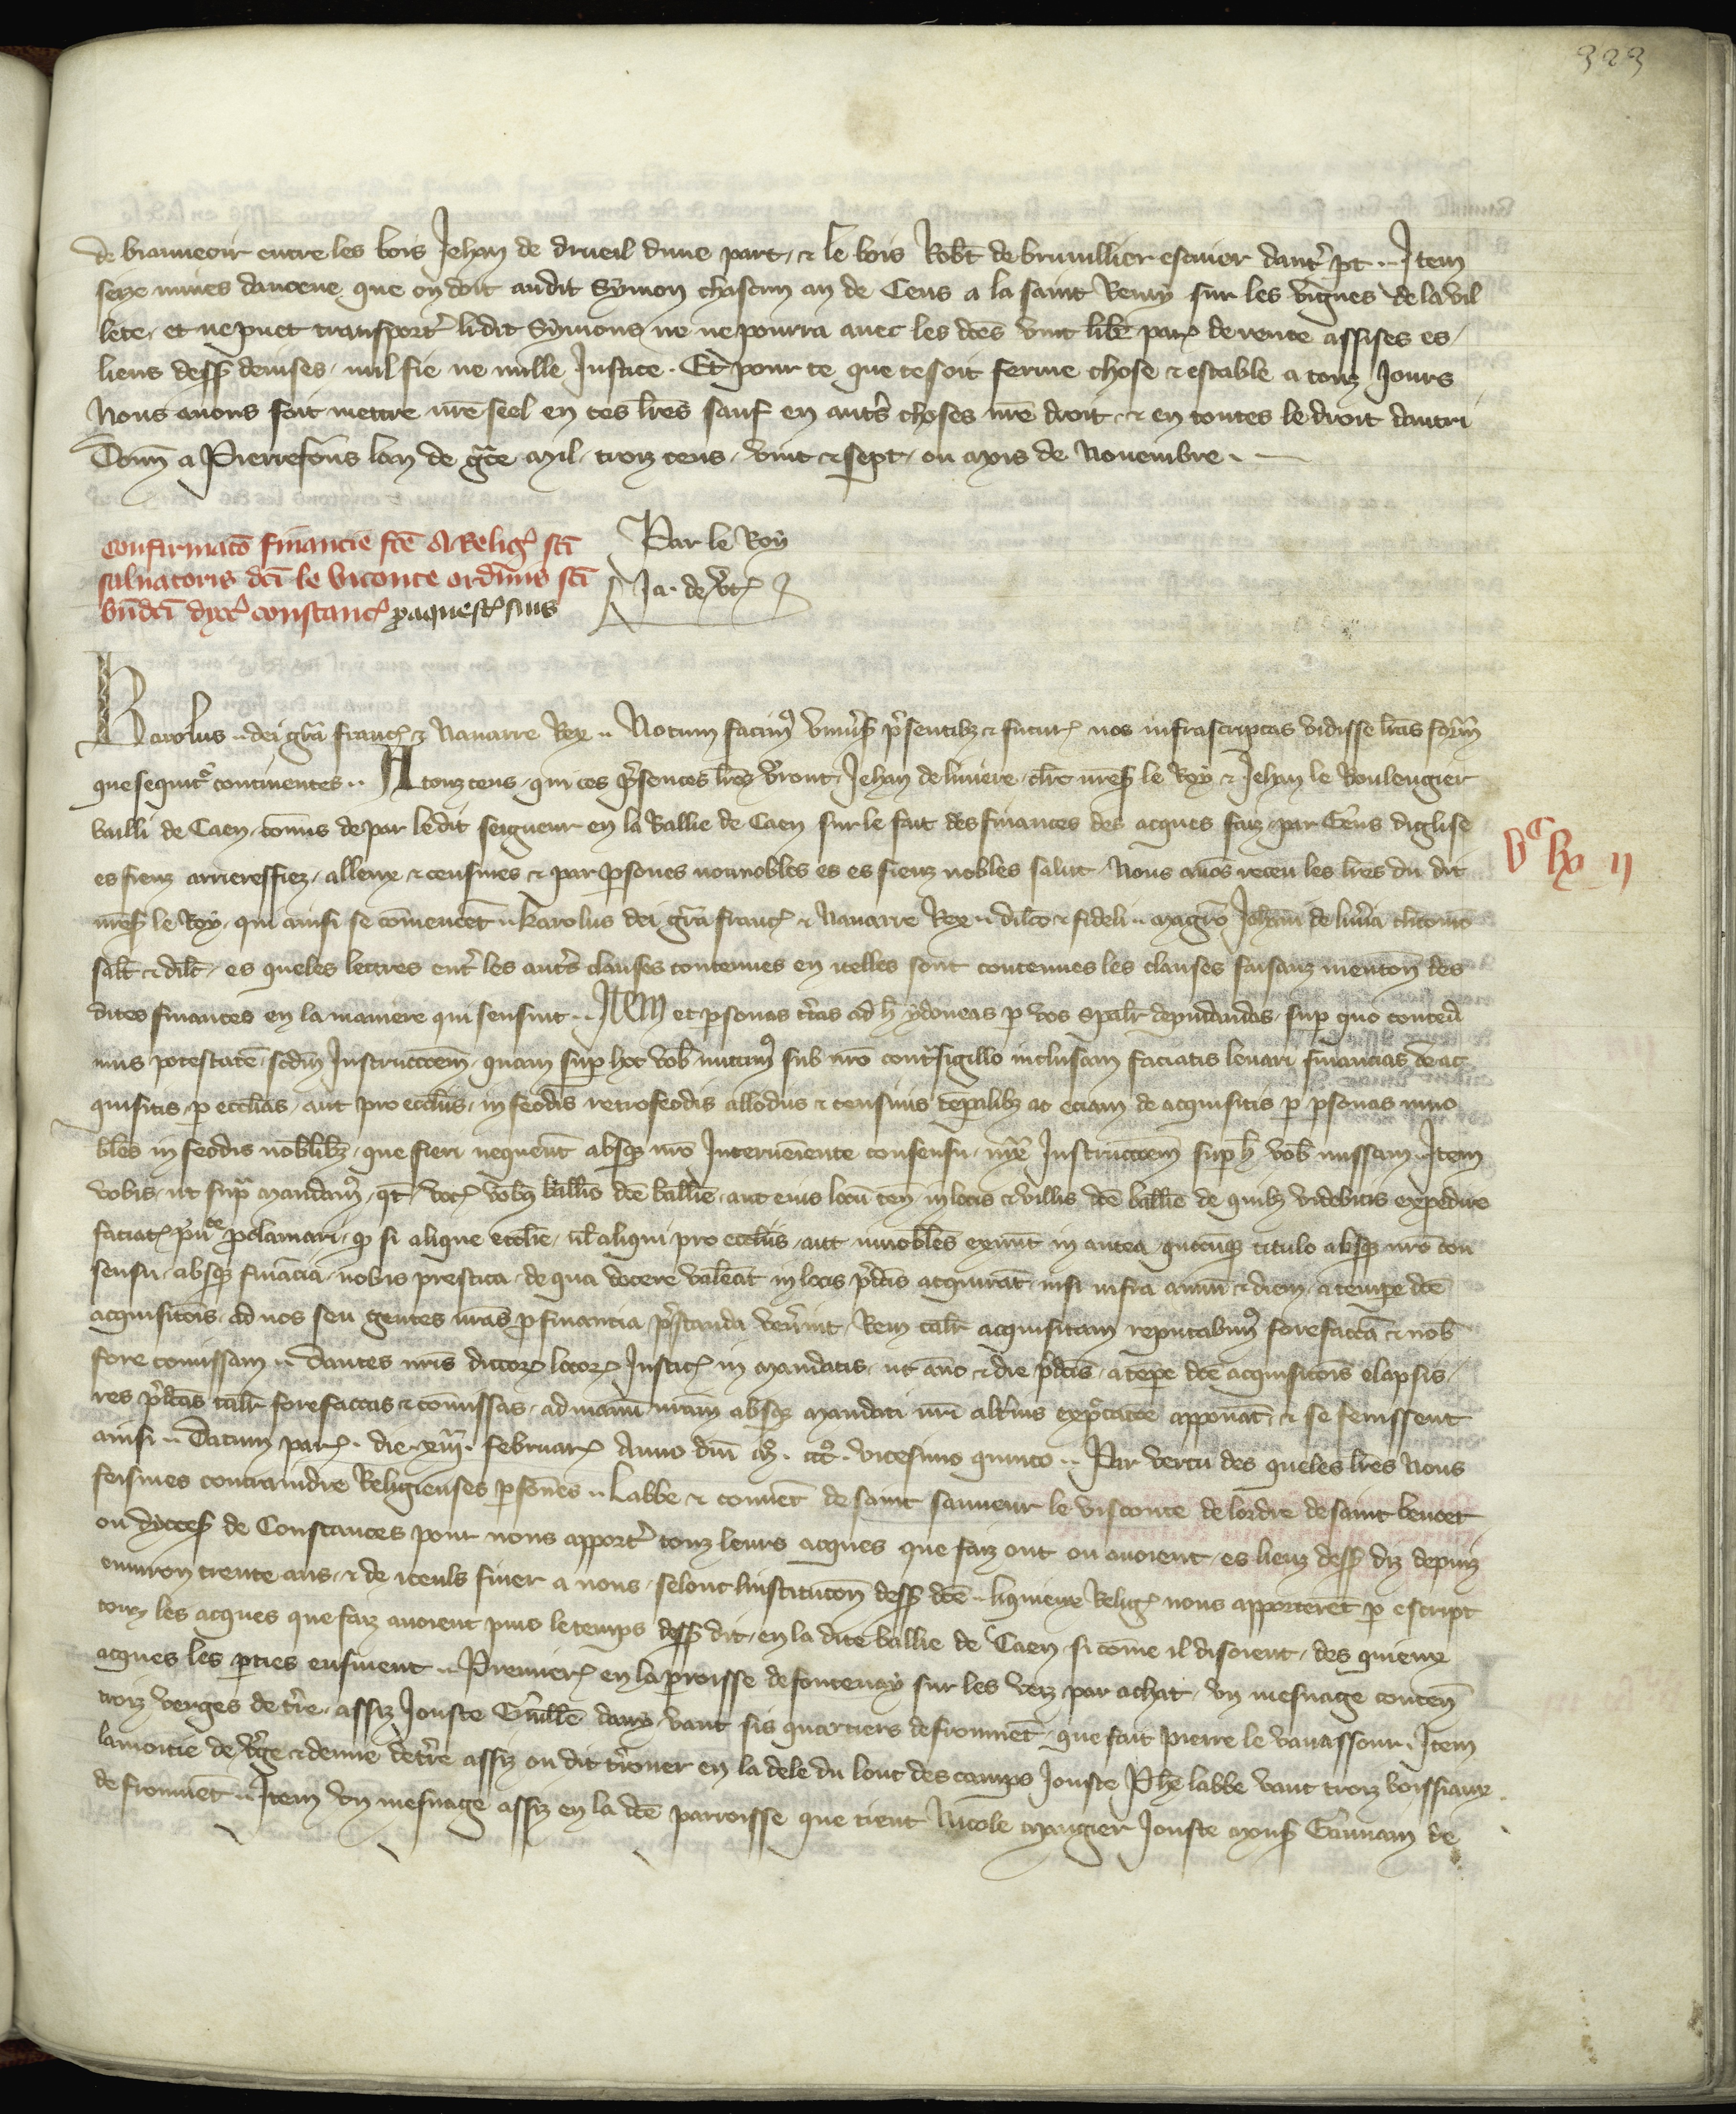 323
de vianneoir entre les bois Jehan de drueil dune part, et le bois Robt de bruuillier escuier dautr pt .. Item
seize mines dauoene que on doit audit Symon chascun an de Cens a la saint Remy sur les vignes de la vil
lete, et ne puet transportr li dit Symons ne ne pourra auec les dces vint libr par de rente assises es
lieus dess deuises, nul fie ne nulle Justice . Et pour ce que ce soit ferme chose et estable a touz Jours
Nous auons fait mettre nre seel en ces lres sauf en autrs choses nre droit, et en toutes le droit dautri
Donn a Pierrefons lan de grce Mil, troiz cens, vint et sept, ou mois de Nouembre .
Confirmaco financie fce A Relig sci
saluatoris dci le viconte ordinis sci
bndci dyoc constanc pro aquest suis
Par le Roy
Ja. de vtz
Karolus .. dei gra franc et Nauarre Rex .. Notum facim9 vniuers presentibz et futur nos infrascriptas vidisse lras form
que sequitr continentes .. A touz ceus, qui ces presentes lres verront, Jehan de liuiere, clerc nres le Roy et Jehan le Boulengier
bailli de Caen, comis de par le dit seigneur en la Ballie de Caen sur le fait des finances des acques faiz par Gens diglise
es fieuz arrieresfiez, alleux et censiues et par psones nonnobles es es fieuz nobles salut, Nous auos receu les lres du dit
nres le Roy, qui ainsi se comencet .. Karolus dei gra franc et Nauarre Rex .. dilco et fideli .. magro Johani de liuia clico nro
salt et dilc, es queles lettres entr les autrs clauses contenues en icelles sont contenues les clauses faisanz menton des
dites finances en la maniere qui sensuit .. Item et psonas certas ad h ydoneas p vos spalr deputandas, sup quo conced
mus potestate, scdm Instructoem, quam sup hoc vob mittim9 sub nro contrsigillo inclusam faciatis leuari financias de ac
quisitis, p ecclias, aut pro ecclis, in feodis retrofeodis allodiis et censiuis tepalibz ac eciam de acquisitis p psonas inno
biles in feodis nobilibz, que fieri nequeunt absqz nro Interueniente consensu, iuxta Instructoem sup h vob missam .. Item
vobis, ut supra mandam9, qt, vocz vobz ballio dce ballie, aut eius locu ten in locis et villis dce ballie de quibz videbitis expedire
faciatz puce pclamari, q si alique ecclie, ul aliqui pro ecclis, aut innobiles exnunc in antea, qucuqz titulo absqz nro con
sensu, absqz finacia, nobis prestita, de qua docere valeat in locis pdcis acquirat, nisi infra annu et diem, a tempe dce
acquisicois, ad nos seu gentes nras p financia prestanda venerint, Rem talr acquisitam reputabim9 forefacta et nob
fore comissam .. Dantes nris dictor locor Justic in mandatis, ut ano et die predcis, a tepe dce acquisicois elapsis,
res predcas talr forefactas et comissas, ad manu nram absqz mandati nri altius expectacoe apponat, et se fenissent
ainsi .. Datum par . die . xiiii . februar Anno dni M . ccc . vicesimo quinto .. Par vertu des queles lres Nous
feismes contraindre Religieuses psones .. Labbe et conuet de saint sauueur le visconte de lordre de saint benoet
ou dyoces de Constances pour nous apportr touz leurs acques que faiz ont ou auoient, es lieuz dess diz depuiz
enuiron trente ans, et de iceuls finer a nous, selont linstitucon dess dce .. liquieux Relig nous apporteret p escript
touz les acques que faiz auoient puis le temps dess dit, en la dite ballie de Caen, si come il disoient, des quieux
acques les pties ensiuent .. Premier en la paroisse de fontenay sur les vez par achat, vn mesnage conten
troiz verges de tre, assiz Jouste Guille dany, vaut sis quartiers de fromet, que fait pierre le vauassour . Item
la moitie de vge et demie de tre assiz ou dit treuuer en la dele du lonc des camps Jouste Ph labbe vaut troiz boissiaux
de fromet .. Item vn mesnage assiz en la dce parroisse que tient Nicole mangier Jouste mons Geruais de
vc lx ii